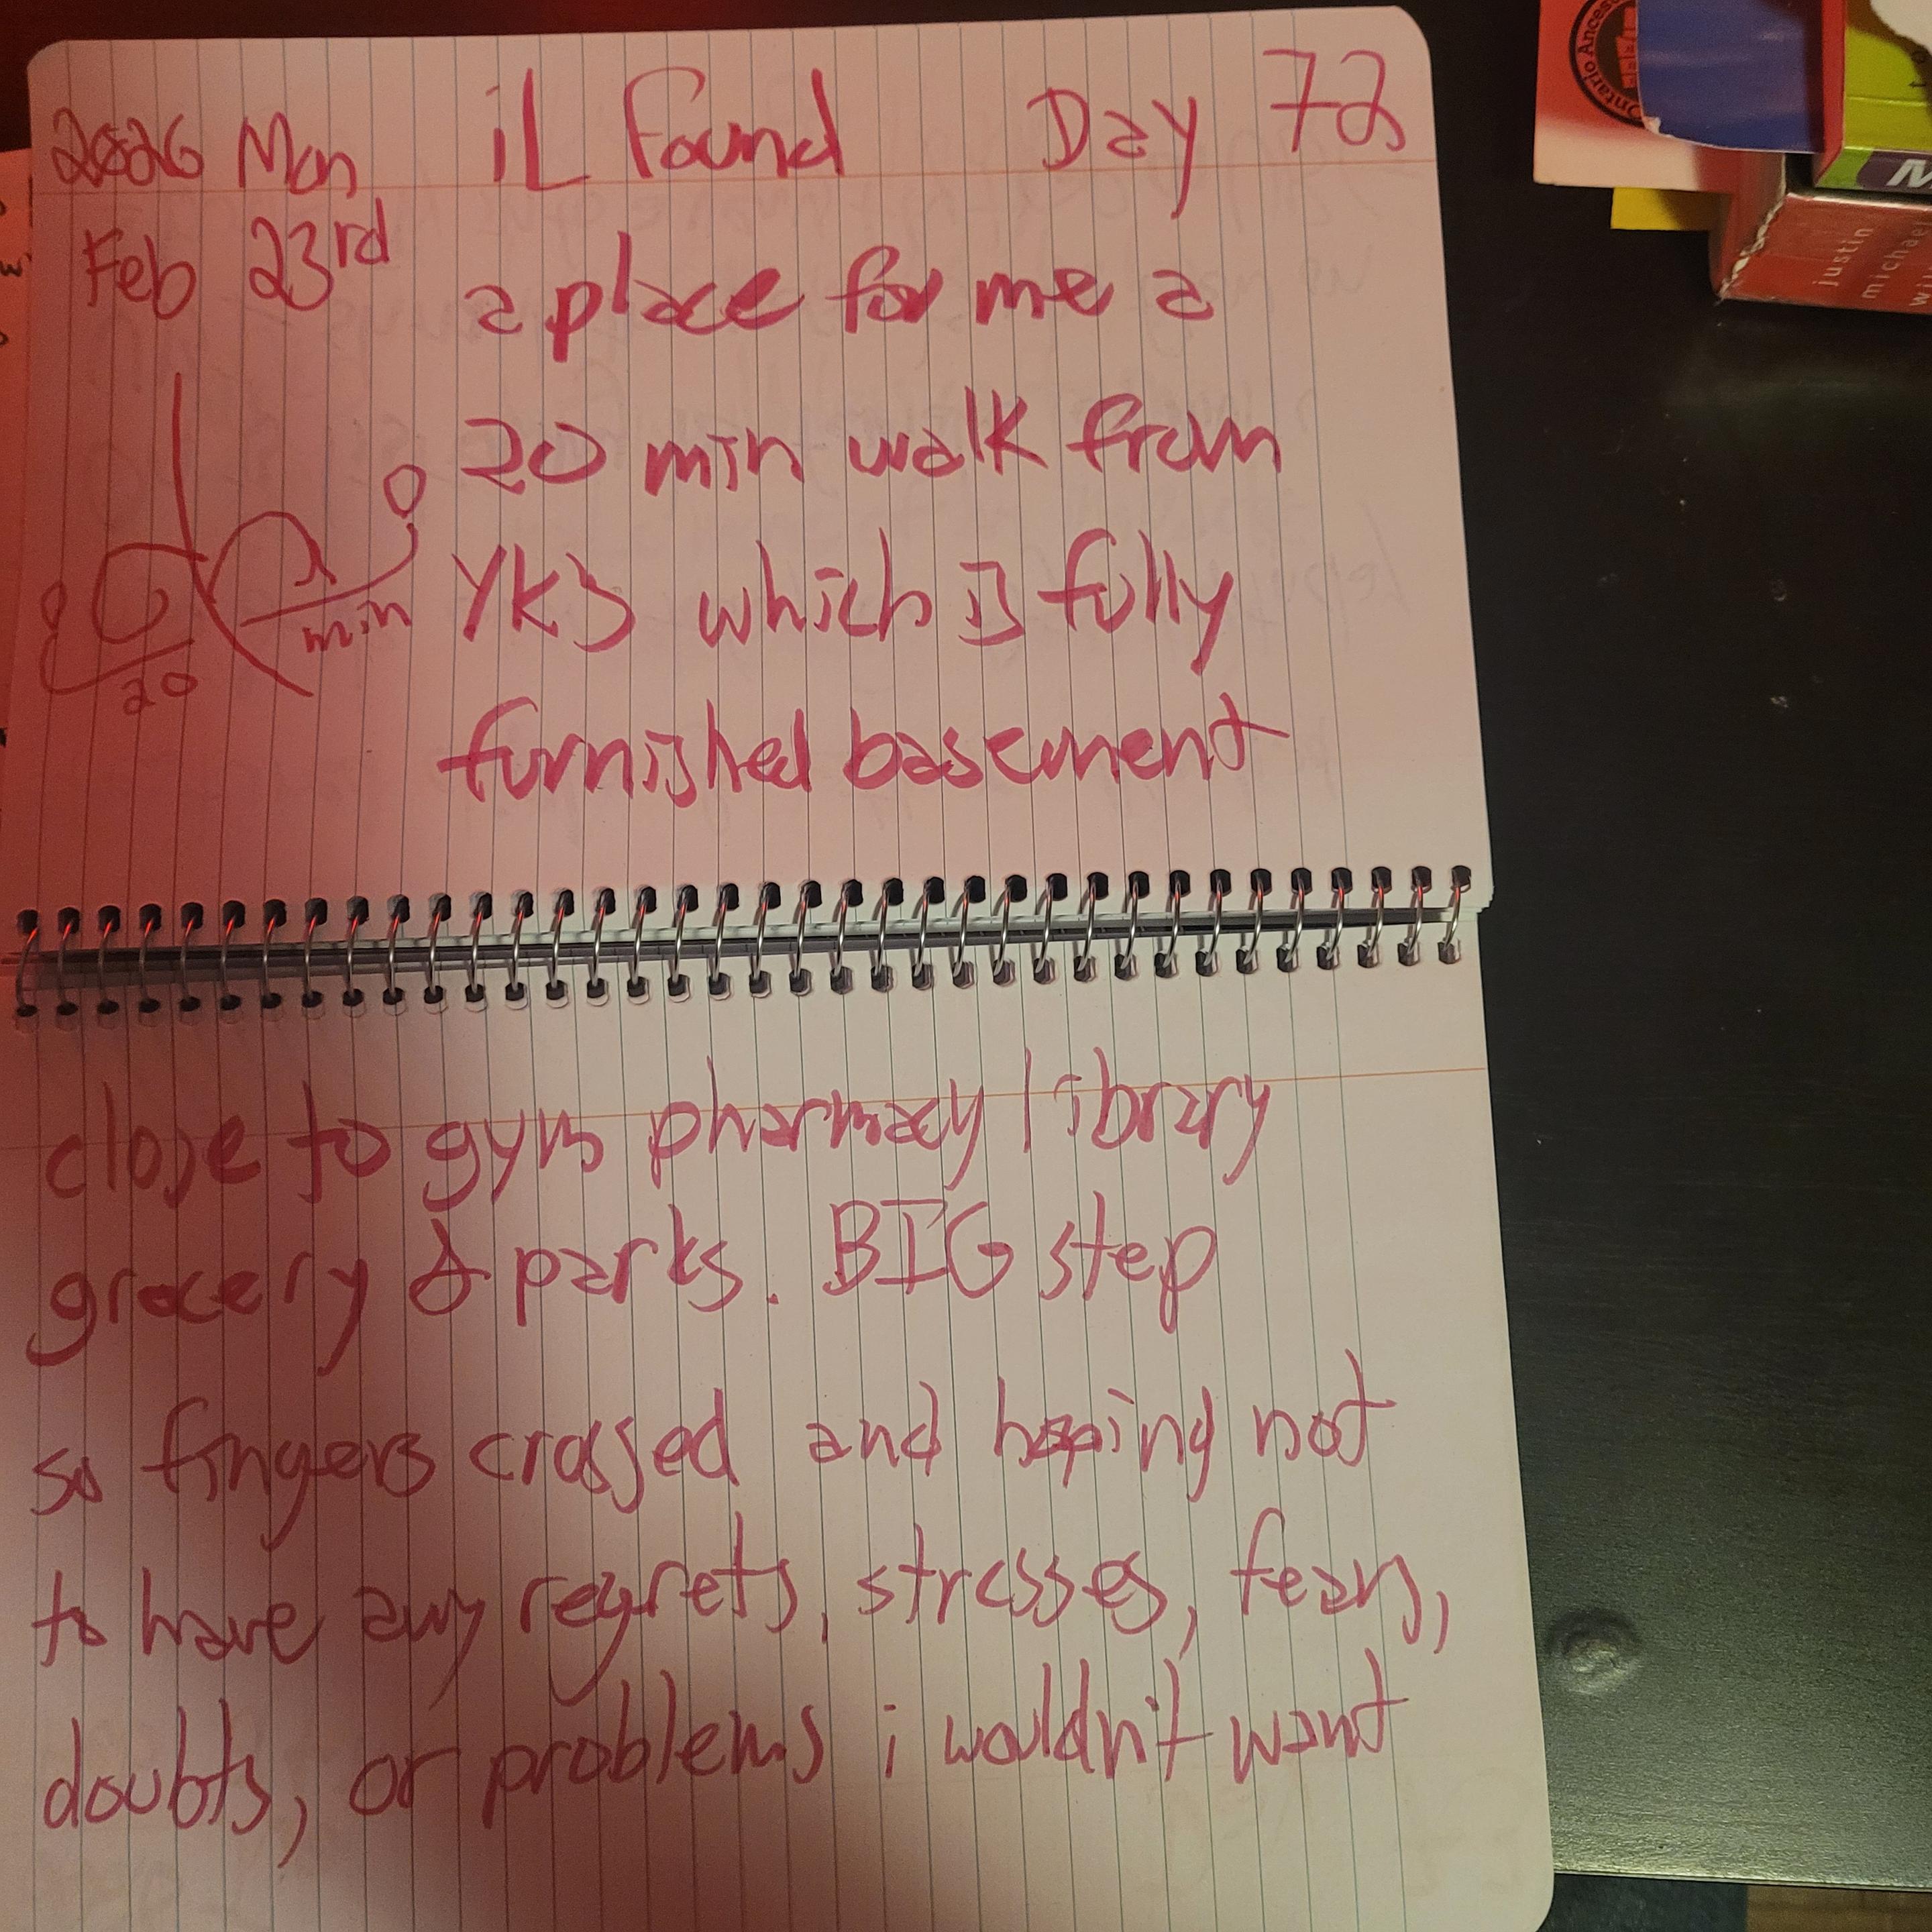 2026 Mon iL Found Day 72
Feb 23rd
a place for me a
20 min walk from
YKS which is fully
furnished basement
20 min
close to gym pharmacy library
grocery & parks. BIG step
so fingers crossed and hoping not
to have any regrets, stresses, fears,
doubts, or problems i wouldn't want
Ontario Ances
M
justin
michae
wi